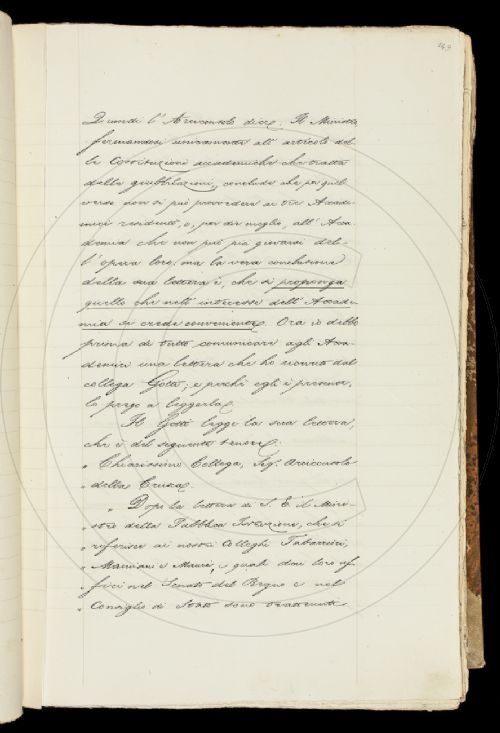 149
Quindi l'Arciconsolo dice: Il Ministro,
fermandosi unicamente all'articolo del-
le Costituzioni accademiche che tratta
delle giubbilazioni, conclude che per quel
verso non si può provvedere ai tre Accade-
mici residenti, o, per dir meglio, all'Acca-
demia che non può più giovarsi del-
l'opera loro: ma la vera conclusione
della sua lettera è, che si proponga
quello che nell'interesse dell'Accade-
mia si crede conveniente. Ora io debbo
prima di tutto comunicare agli Acca-
demici una lettera che ho ricevuto dal
collega Gotti; e poichè egli è presente,
lo prego a leggerla.
Il Gotti legge la sua lettera,
che è del seguente tenore:
„ Chiarissimo Collega, Sig. Arciconsolo
„ della Crusca.
„ Dopo la lettera di S. E. il Mini-
„ stro della Pubblica Istruzione, che si
„ riferisce ai nostri Colleghi Tabarrini,
„ Mamiani e Mauri, i quali dai loro uf-
„ fici nel Senato del Regno e nel
„ Consiglio di Stato sono trattenuti